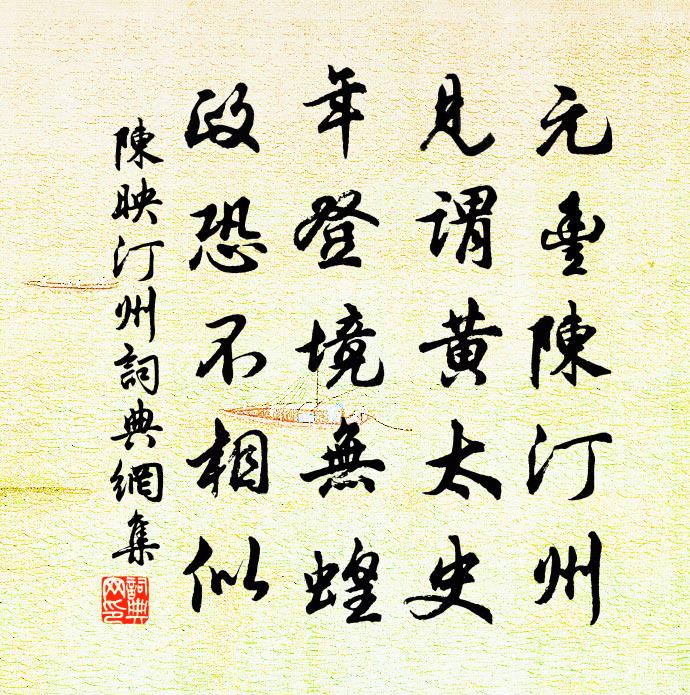 元豐陳汀州
見謂黄太史
年登境無蝗
政恐不相似
陳映汀州詞典網集
詞典
网印